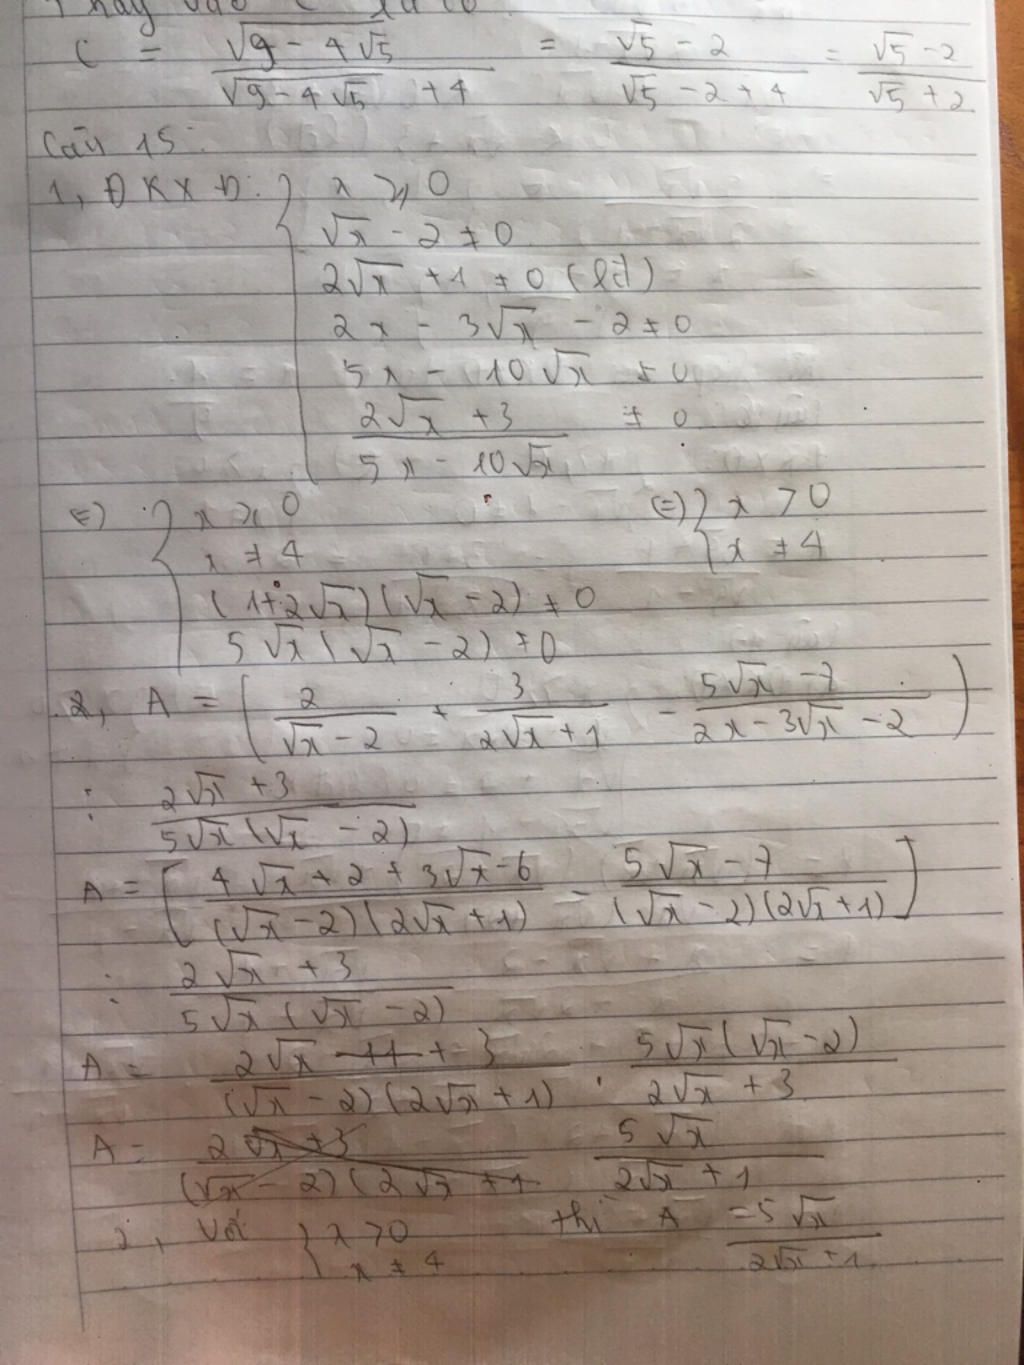 C = √(9 - 4√5) / (√(9 - 4√5) + 4) = (√5 - 2) / (√5 - 2 + 4) = (√5 - 2) / (√5 + 2)
Câu 15:
1, ĐKXĐ: { x ⩾ 0
√x - 2 ≠ 0
2√x + 1 ≠ 0 (lđ)
2x - 3√x - 2 ≠ 0
5x - 10√x ≠ 0
(2√x + 3) / (5x - 10√x) ≠ 0
(=) { x ⩾ 0 (=) { x > 0
x ≠ 4 x ≠ 4
(1 + 2√x)(√x - 2) ≠ 0
5√x(√x - 2) ≠ 0
2, A = ( 2 / (√x - 2) + 3 / (2√x + 1) - (5√x - 7) / (2x - 3√x - 2) )
: (2√x + 3) / (5√x(√x - 2))
A = [ (4√x + 2 + 3√x - 6) / ((√x - 2)(2√x + 1)) - (5√x - 7) / ((√x - 2)(2√x + 1)) ]
: (2√x + 3) / (5√x(√x - 2))
A = (2√x + 3) / ((√x - 2)(2√x + 1)) . 5√x(√x - 2) / (2√x + 3)
A = 5√x / (2√x + 1)
với { x > 0 thì A = 5√x / (2√x + 1)
x ≠ 4